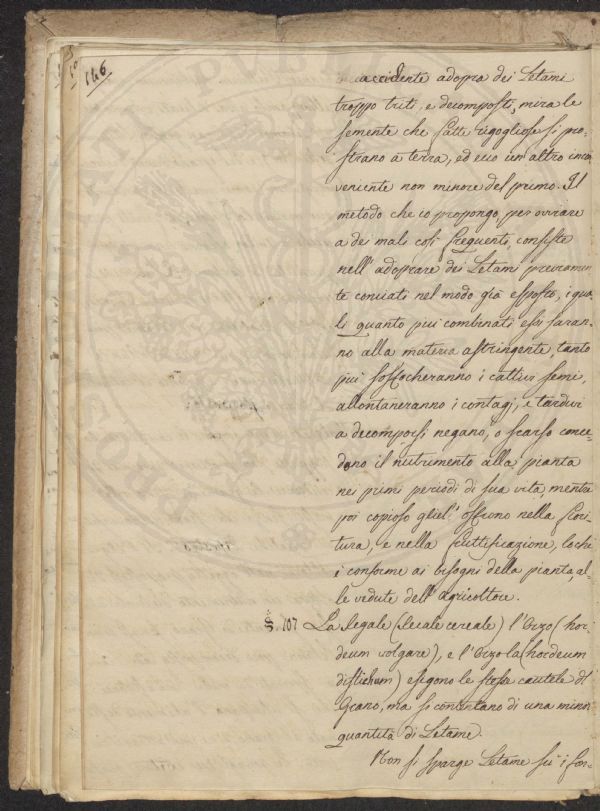 146
accidente adopra dei Letami
troppo triti, e decomposti, mira le
semente che fatte rigogliose si pro-
strano a terra, ed ecco un'altro inco
veniente non minore del primo. Il
metodo che io propongo, per ovviare
a dei mali così frequenti, consiste
nell'adoprare dei Letami previamen
te conciati nel modo già esposto, i qua
li quanto più combinati essi saran-
no alla materia astringente, tanto
più soffocheranno i cattivi semi,
allontaneranno i contagj, e tardivi
a decomporsi negano, o scarso conce-
dono il nutrimento alla pianta
nei primi periodi di sua vita, mentre
poi copioso gliel' offrono nella fiori
tura, e nella fruttificazione, lochè
è conforme ai bisogni della pianta, al-
le vedute dell'agricoltore.
§. 107 La Segale (Secale cereale) l'Orzo (hor
deum volgare), e l'Orzola (hordeum
distichum) esigono le stesse cautele del
Grano, ma si contentano di una minor
quantità di Letame.
Non si sparge Letame su i for-